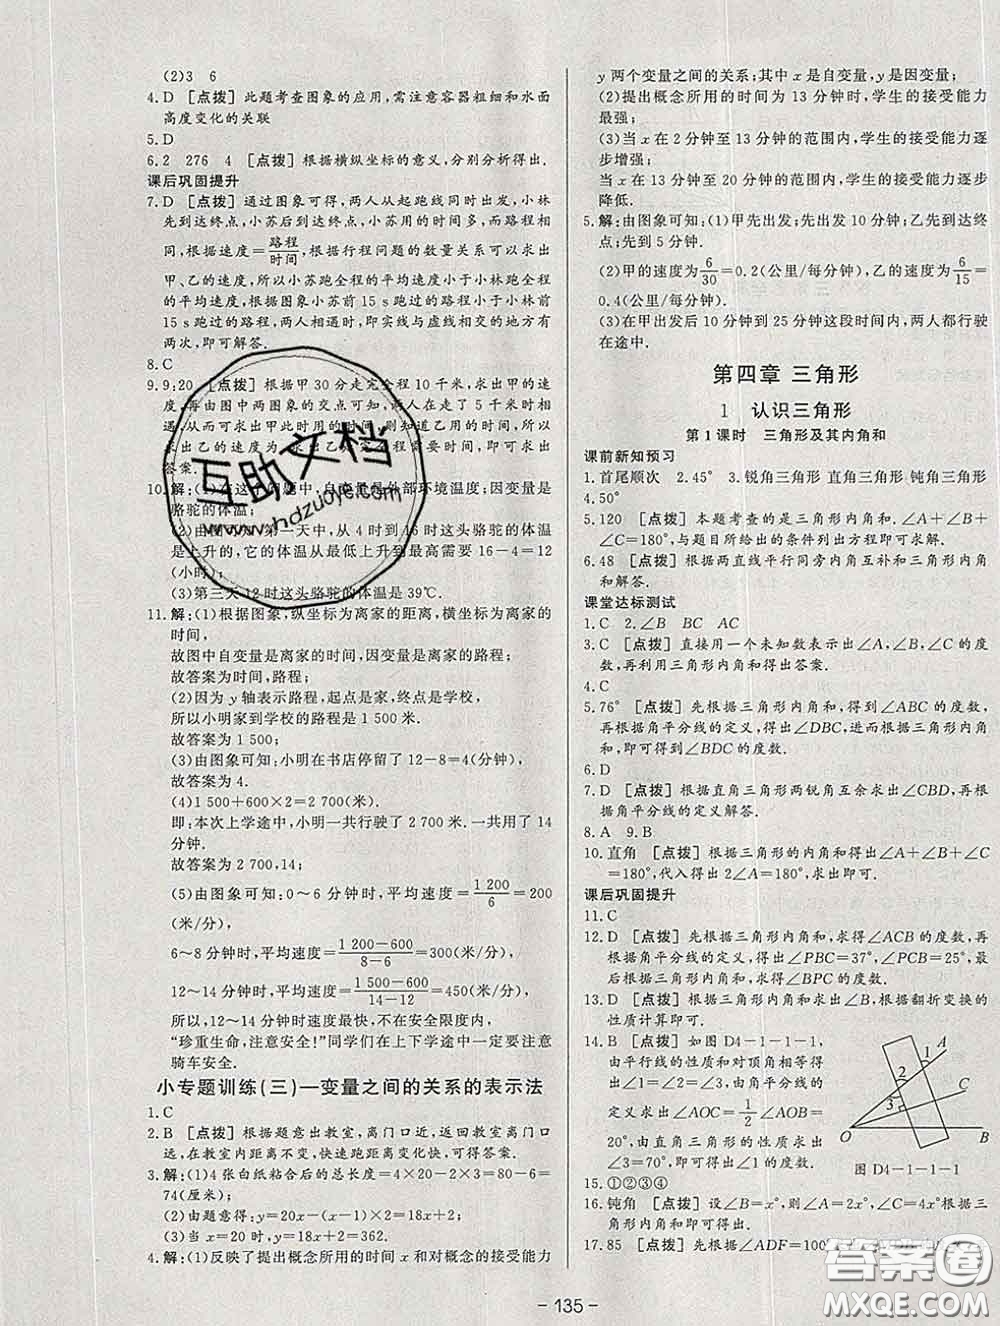 (2)3 6
4.D [点拨]此题考查图象的应用,需注意容器粗细和水面
高度变化的关联
5.D
6.2 276 4 [点拨]根据横纵坐标的意义,分别分析得出.
课后巩固提升
7.D [点拨]通过图象可知,两人从起跑线同时出发,小林
先到达终点,小苏后到达终点,小苏用的时间多,而路程
相同,根据速度=路程/时间,根据行程问题的数量关系可以求出
甲、乙的速度,所以小苏跑全程的平均速度小于小林跑全程
的平均速度,根据图象小苏前15 s跑过的路程小于小林前
15 s跑过的路程,两人相遇时,即实线与虚线相交的地方有
两次,即可解答.
8.C
9.9:20 [点拨]根据甲30分走完全程10千米,求出甲的速
度,再由图中两图象的交点可知,两人在走了5千米时相
遇,从而可求出甲此时用了15分,则乙用了10分,所以可
求出乙的速度,求出乙走完全程需要时间,此题得出
答案.
10.解:(1)在这个问题中,自变量是外部环境温度;因变量是
骆驼的体温;
(2)由图可知,第一天中,从4时到16时这头骆驼的体温
是上升的,它的体温从最低上升到最高需要16-4=12
(小时);
(3)第三天12时这头骆驼的体温是39℃.
11.解:(1)根据图象,纵坐标为离家的距离,横坐标为离家的
时间,
故图中自变量是离家的时间,因变量是离家的路程;
故答案为时间,路程;
(2)因为y轴表示路程,起点是家,终点是学校,
所以小明家到学校的路程是1 500米.
故答案为1 500;
(3)由图象可知:小明在书店停留了12-8=4(分钟),
故答案为4.
(4)1 500+600×2=2 700(米)
即:本次上学途中,小明一共行驶了2 700米.一共用了14
分钟.
故答案为2 700,14;
(5)由图象可知:0~6分钟时,平均速度=1 200/6=200
(米/分),
6~8分钟时,平均速度=(1 200-600)/(8-6)=300(米/分),
12~14分钟时,平均速度=(1 500-600)/(14-12)=450(米/分),
所以,12~14分钟时速度最快,不在安全限度内,
“珍重生命,注意安全!”同学们在上下学途中一定要注意
骑车安全.
小专题训练(三)—变量之间的关系的表示法
1.C
2.B [点拨]根据题意出教室,离门口近,返回教室离门口
远,在教室内距离不变,快速跑距离变化快,可得答案.
3.解:(1)4张白纸粘合后的总长度=4×20-2×3=80-6=
74(厘米);
(2)由题意得:y=20x-(x-1)×2=18x+2;
(3)当x=20时,y=18x+2=362.
4.解:(1)反映了提出概念所用的时间x和对概念的接受能力
y两个变量之间的关系;其中x是自变量,y是因变量;
(2)提出概念所用的时间为13分钟时,学生的接受能力
最强;
(3)当x在2分钟至13分钟的范围内,学生的接受能力逐
步增强;
当x在13分钟至20分钟的范围内,学生的接受能力逐步
降低.
5.解:由图象可知:(1)甲先出发;先出发10分钟;乙先到达终
点;先到5分钟.
(2)甲的速度为6/30=0.2(公里/每分钟),乙的速度为6/15=
0.4(公里/每分钟);
(3)在甲出发后10分钟到25分钟这段时间内,两人都行驶
在途中.
第四章 三角形
1 认识三角形
第1课时 三角形及其内角和
课前新知预习
1.首尾顺次 2.45° 3.锐角三角形 直角三角形 钝角三角形
4.50°
5.120 [点拨]本题考查的是三角形内角和.∠A+∠B+
∠C=180°,与题目所给出的条件列出方程即可求解.
6.48 [点拨]根据两直线平行同旁内角互补和三角形内角
和解答.
课堂达标测试
1.C 2.∠B BC AC
3.C [点拨]直接用一个未知数表示出∠A,∠B,∠C的度
数,再利用三角形内角和得出答案.
4.C
5.76° [点拨]先根据三角形内角和,得到∠ABC的度数,
再根据角平分线的定义,得出∠DBC,进而根据三角形内角
和,即可得到∠BDC的度数.
6.D
7.D [点拨]根据直角三角形两锐角互余求出∠CBD,再根
据角平分线的定义解答.
8.A 9.B
10.直角 [点拨]根据三角形的内角和得出∠A+∠B+∠C
=180°,代入得出2∠A=180°,求出即可.
课后巩固提升
11.C
12.D [点拨]先根据三角形内角和,求得∠ACB的度数,再
根据角平分线的定义,得出∠PBC=37°,∠PCB=25°,最
后根据三角形内角和,求得∠BPC的度数.
13.D [点拨]根据三角形内角和求出∠B,根据翻折变换的
性质计算即可.
14.B [点拨]如图D4-1-1-1,
由平行线的性质和对顶角相等
得到∠2的度数,由角平分线的
定义求出∠AOC=1/2∠AOB=
20°,由直角三角形的性质求出
∠3,即可得出结果.
1 A
2 C
3
O B
图D4-1-1-1
15.①②③④
16.钝角 [点拨]设∠B=x°,则∠A=2x°,∠C=4x°根据三
角形内角和即可得出.
17.85 [点拨]先根据∠ADF=100°
- 135 -
互助文档
www.hdzuoye.com
答案圈
MXQE.COM